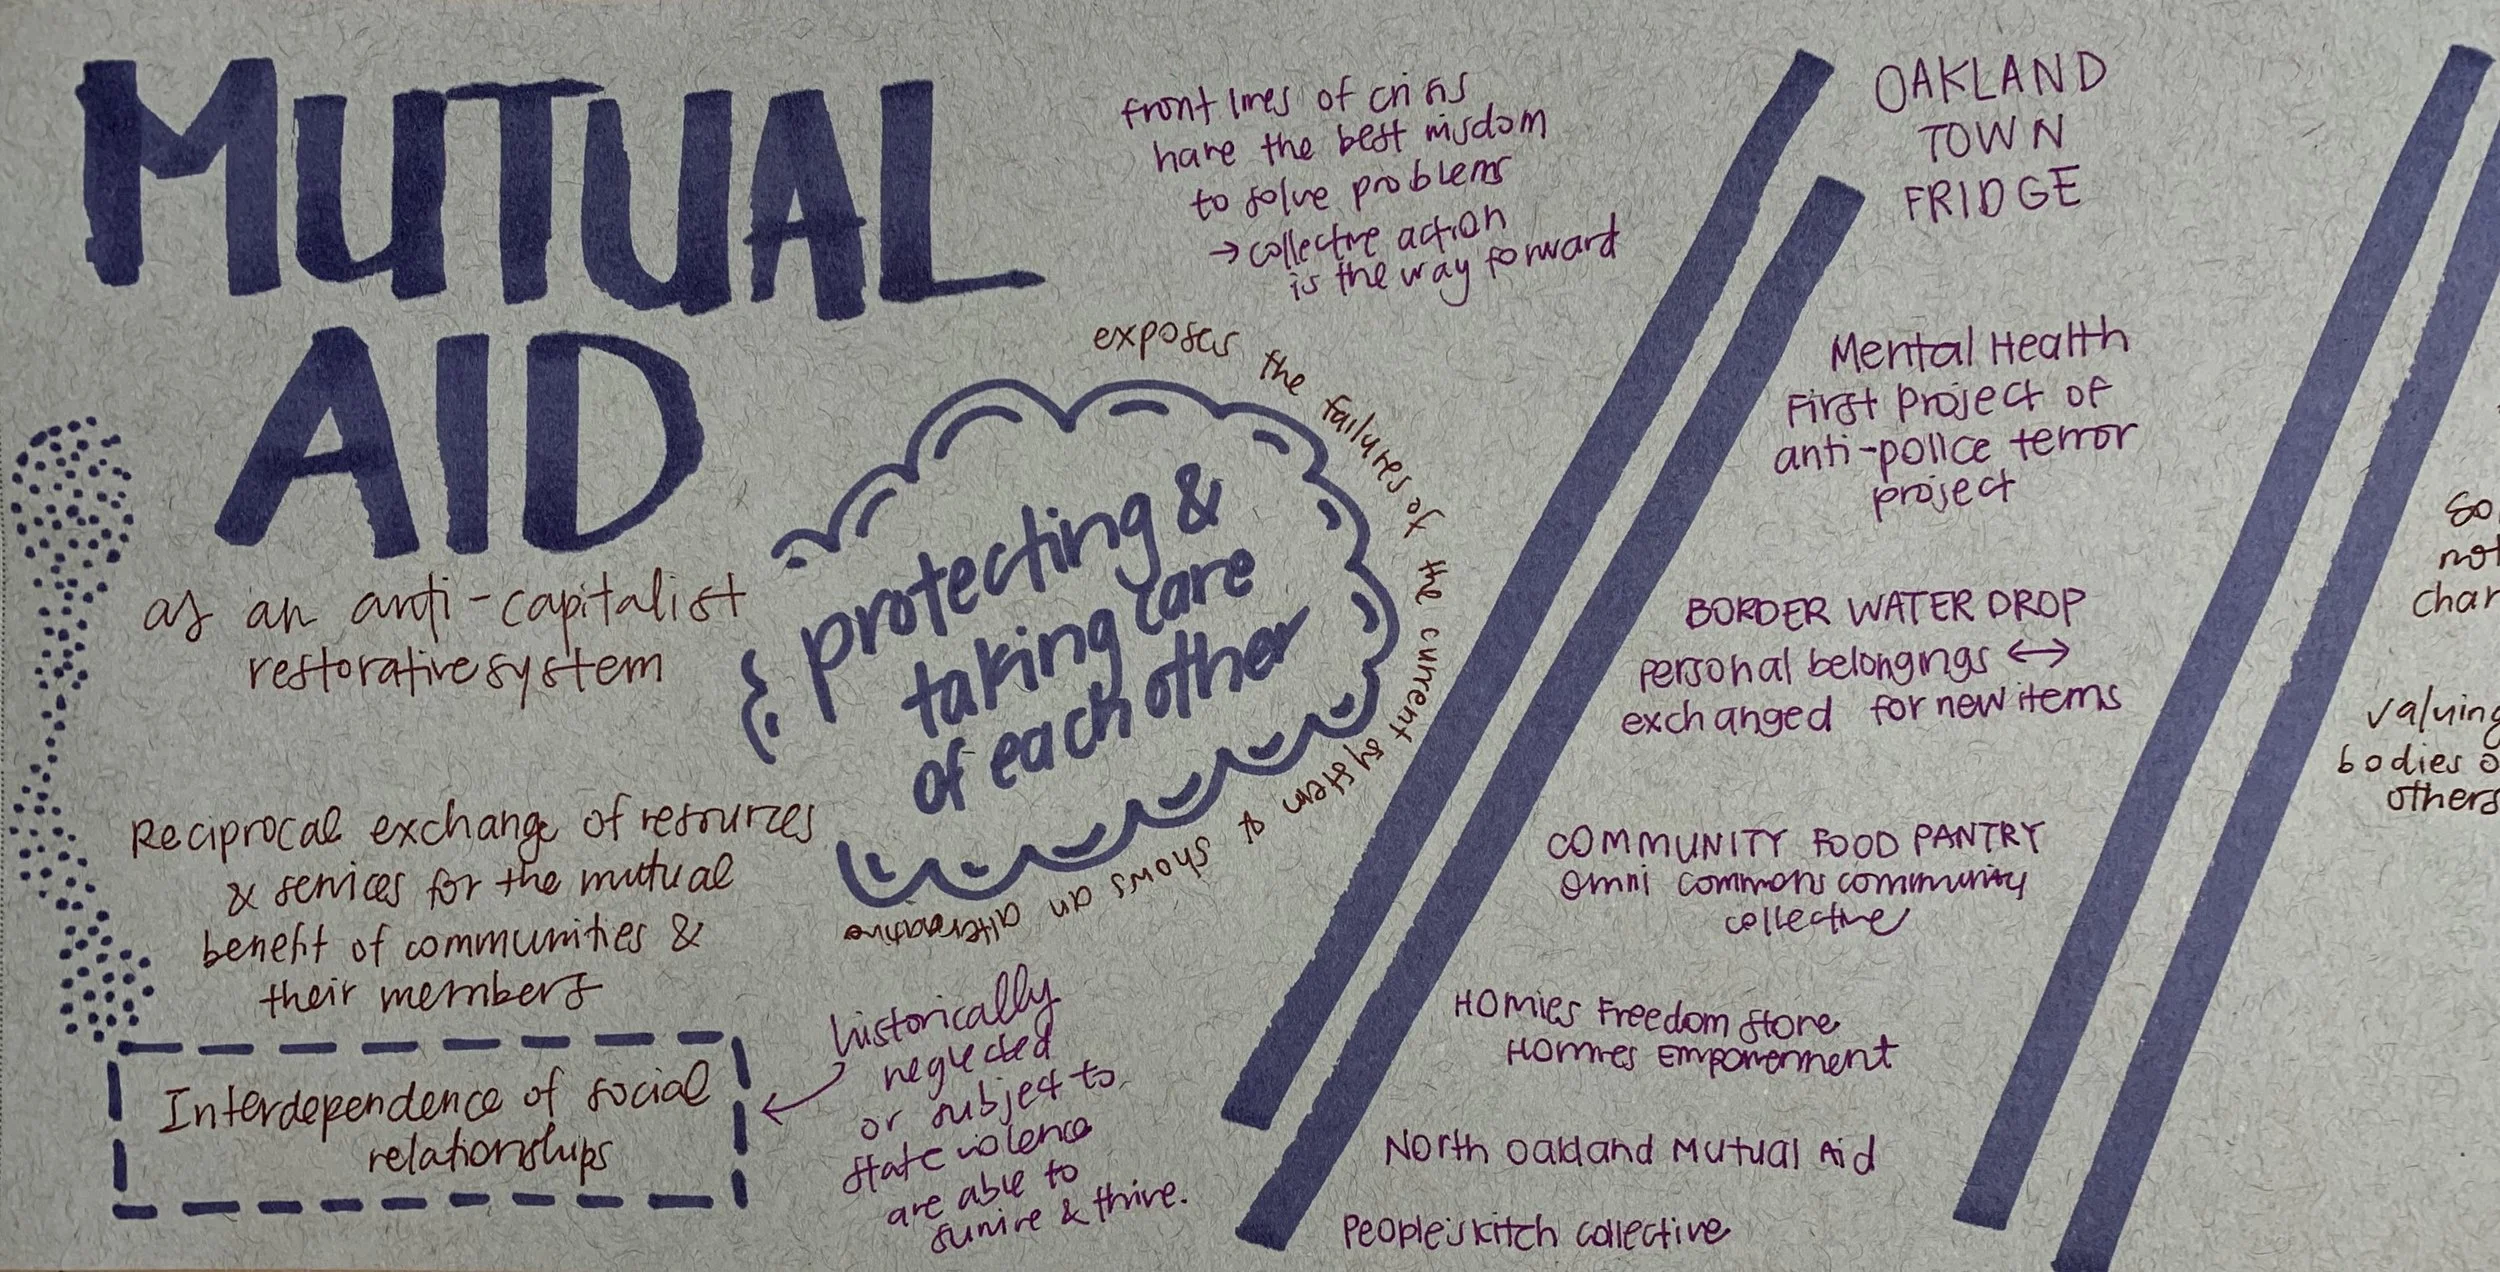 MUTUAL
AID
as an anti-capitalist
restorative system
Reciprocal exchange of resources
& services for the mutual
benefit of communities &
their members
Interdependence of social
relationships
front lines of crisis
have the best wisdom
to solve problems
→ collective action
is the way forward
exposes the failures of the current system & shows an alternative
protecting &
taking care
of each other
historically
neglected
or subject to
state violence
are able to
survive & thrive.
OAKLAND
TOWN
FRIDGE
Mental Health
First Project of
anti-police terror
project
BORDER WATER DROP
personal belongings ↔
exchanged for new items
COMMUNITY FOOD PANTRY
Omni commons community
collective
Homies Freedom Store
Homies Empowerment
North Oakland Mutual Aid
People's Kitch collective
so
not
char
valuing
bodies o
others